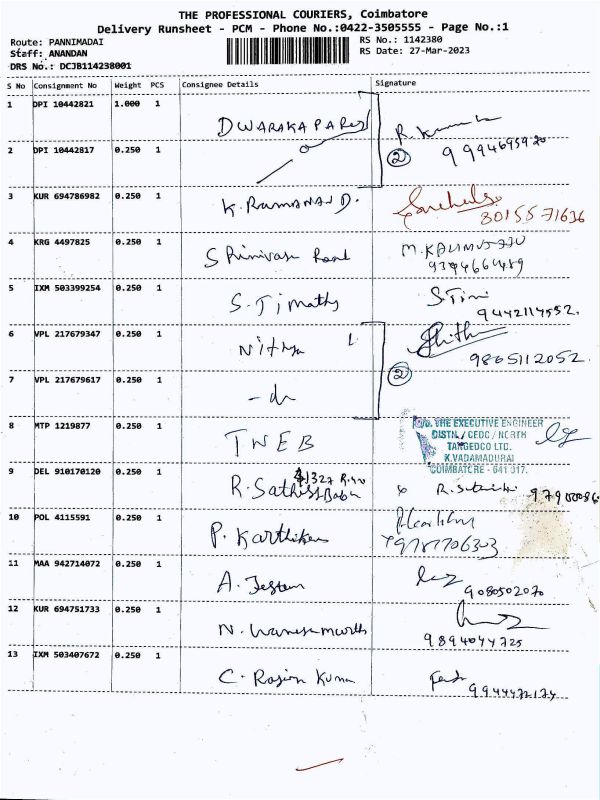 THE PROFESSIONAL COURIERS, Coimbatore
Delivery Runsheet - PCM - Phone No.:0422-3505555 - Page No.:1
Route: PANNIMADAI
RS No.: 1142380
Staff: ANANDAN
RS Date: 27-Mar-2023
DRS No.: DCJB114238001
S No Consignment No Weight PCS Consignee Details Signature
1 DPI 10442821 1.000 1 DWARAKA
2 DPI 10442817 0.250 1 2
3 KUR 694786982 0.250 1 K. RAMANAN D. 3015571636
4 KRG 4497825 0.250 1 Srinivasa
5 IXM 503399254 0.250 1 S. Timathy S. Timi
9442114552.
6 VPL 217679347 0.250 1 Nithya 1
9865112052.
2
7 VPL 217679617 0.250 1 - do
8 MTP 1219877 0.250 1 TNEB
O/o. THE EXECUTIVE ENGINEER
DISTN./ CEDC / NORTH
TANGEDCO LTD.
K.VADAMADURAI
COIMBATORE - 641 017.
9 DEL 910170120 0.250 1 R. Sathish Babu
10 POL 4115591 0.250 1 P. Karthikeu
11 MAA 942714072 0.250 1 A. Jesten
9080502070
12 KUR 694751733 0.250 1 N.
9894044725
13 IXM 503407672 0.250 1 C. Kumar
9944472174